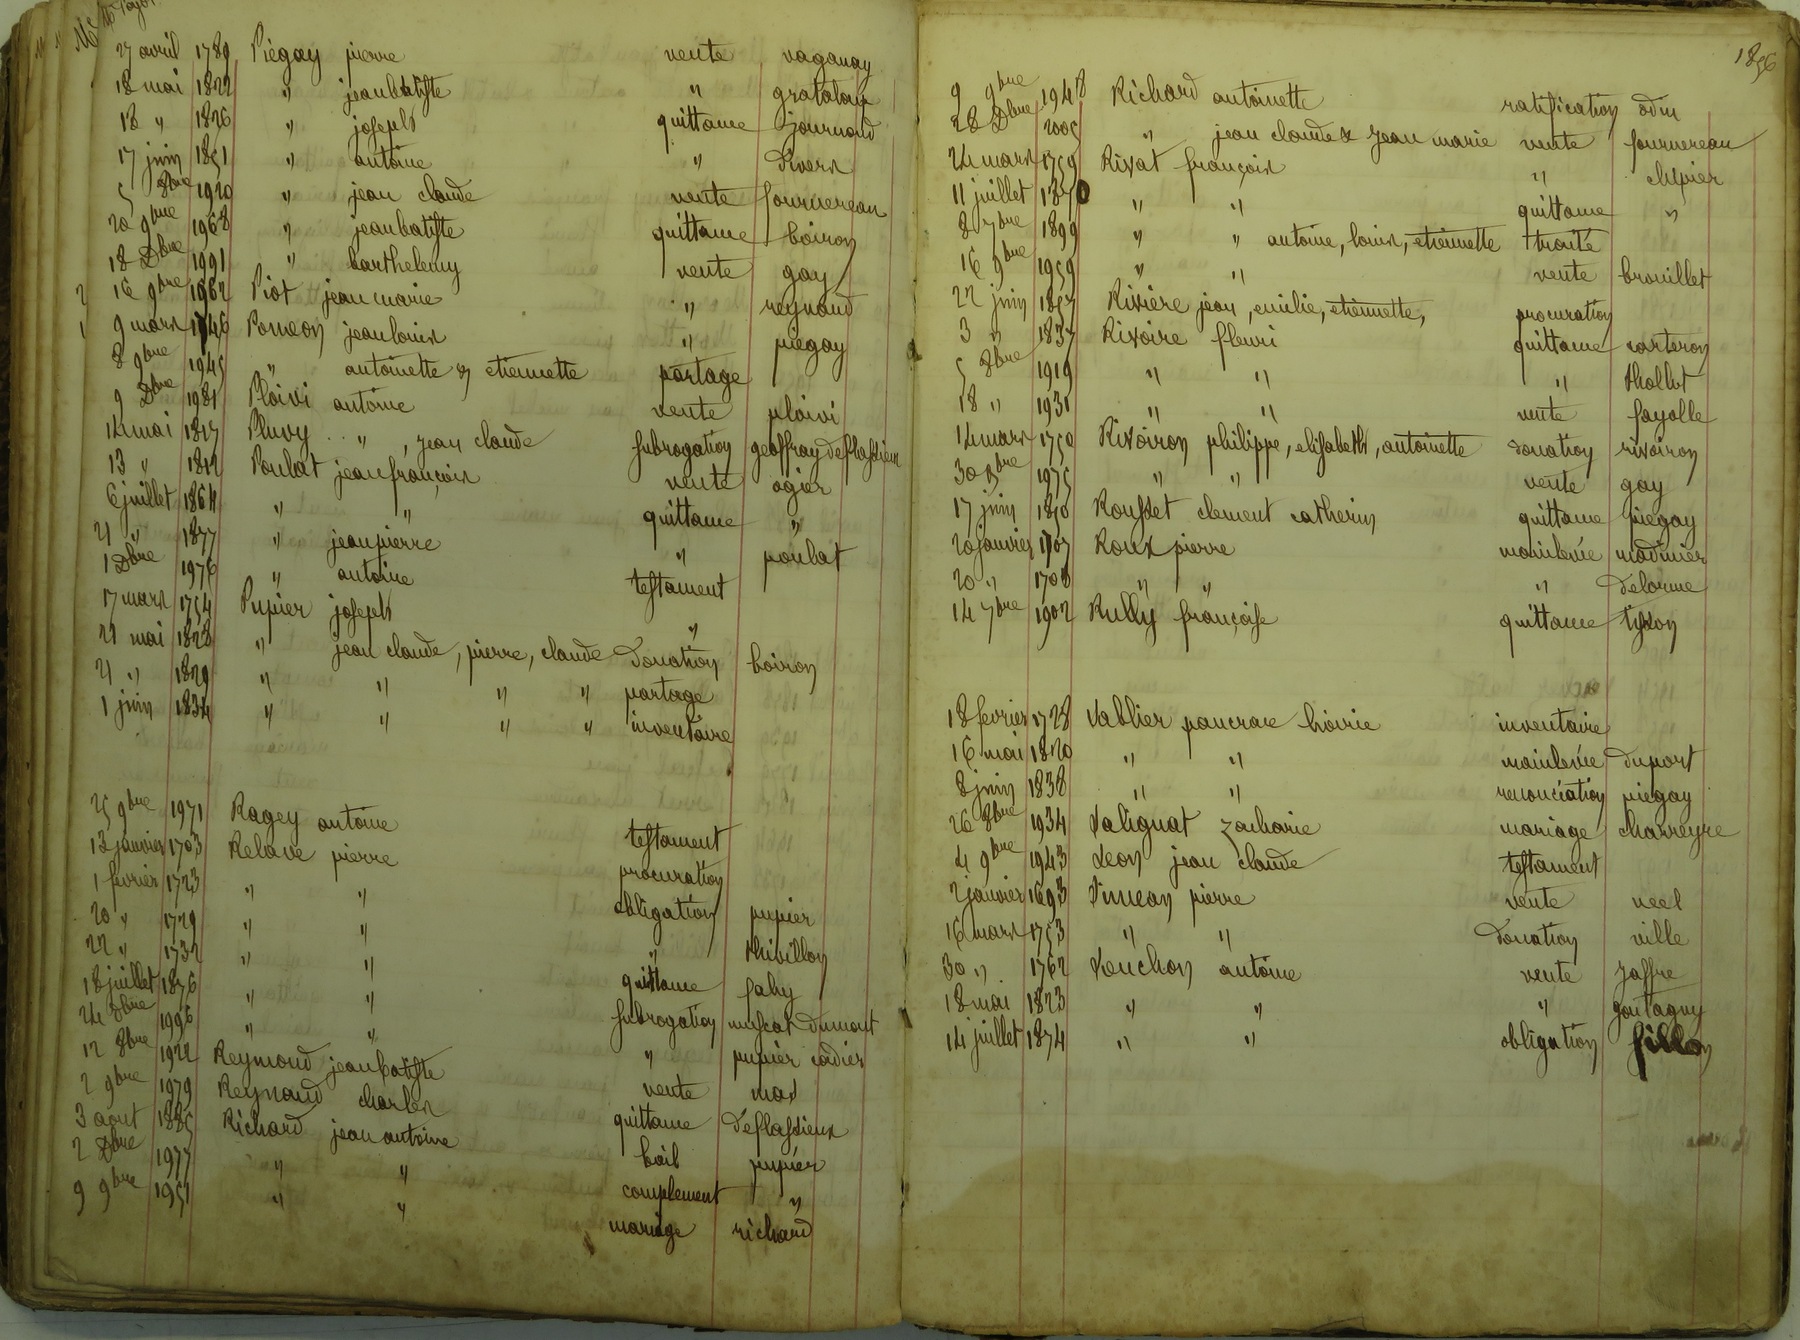 27 avril 1789 Piégay pierre vente vaganay
18 mai 1822 " jean batiste " grataloup
18 " 1826 " joseph quittance journoud
17 juin 1851 " antoine "
5 8bre 1920 " jean claude vente fournereau
20 9bre 1968 " jean batiste quittance boiron
18 Dbre 1991 " barthelemy vente gay
2 16 9bre 1962 Piot jean marie " reynaud
1 9 mars 1746 Pomeon jean louis " piegay
8 9bre 1945 " antoinette & etiennette partage
9 Dbre 1981 Ploivi antoine vente ploivi
14 mai 1817 Pluvy " , jean claude subrogation geoffray deflassieux
13 " 1812 Poulat jean françois vente ogier
6 juillet 1864 " " quittance "
21 " 1877 " jean pierre " poulat
1 Dbre 1976 " antoine testament
17 mars 1754 Pupier joseph "
21 mai 1828 " jean claude, pierre, claude donation boiron
21 " 1829 " " " " partage
1 juin 1834 " " " " inventaire
25 9bre 1971 Ragey antoine testament
13 janvier 1703 Relave pierre procuration
1 fevrier 1723 " " obligation pupier
20 " 1729 " " " thivillon
22 " 1732 " " quittance faby
18 juillet 1876 " " subrogation muscat dumont
24 Dbre 1996 " " " pupier cadier
12 8bre 1922 Reymond jean batiste vente mas
2 9bre 1979 Reynaud charles quittance deflassieux
3 aout 1885 Richard jean antoine bail pupier
2 Dbre 1977 " " complement "
9 9bre 1951 " " mariage richard
1896
9 9bre 1948 Richard antoinette ratification odin
28 Dbre 2005 " jean claude & jean marie vente fournereau
24 mars 1759 Rivat françois " clepier
11 juillet 1870 " " quittance "
8 7bre 1899 " " antoine, louis, etiennette traité
16 9bre 1959 " " vente brouillet
22 juin 1857 Rivière jean, emilie, etiennette, procuration
3 " 1837 Rivoire fleuri quittance carteron
5 8bre 1919 " " " thollet
18 " 1931 " " vente fayolle
14 mars 1750 Rivoiron philippe, elisabeth, antoinette donation rivoiron
30 Dbre 1975 " " vente gay
17 juin 1850 Rousset clement catherin quittance piegay
20 janvier 1707 Roux pierre mainlevée madinier
20 " 1708 " " " delorme
14 7bre 1902 Rully françoise quittance tisson
18 fevrier 1728 Vallier pancrace hoirie inventaire
16 mai 1820 " " mainlevée duport
8 juin 1838 " " renonciation piegay
26 8bre 1934 Valignat zacharie mariage charreyre
4 9bre 1943 Veon jean claude testament
2 janvier 1693 Vimeon pierre vente neel
16 mars 1753 " " donation ville
30 " 1762 Vouchon antoine vente jaffre
18 mai 1823 " " " goutagny
14 juillet 1874 " " obligation fillon